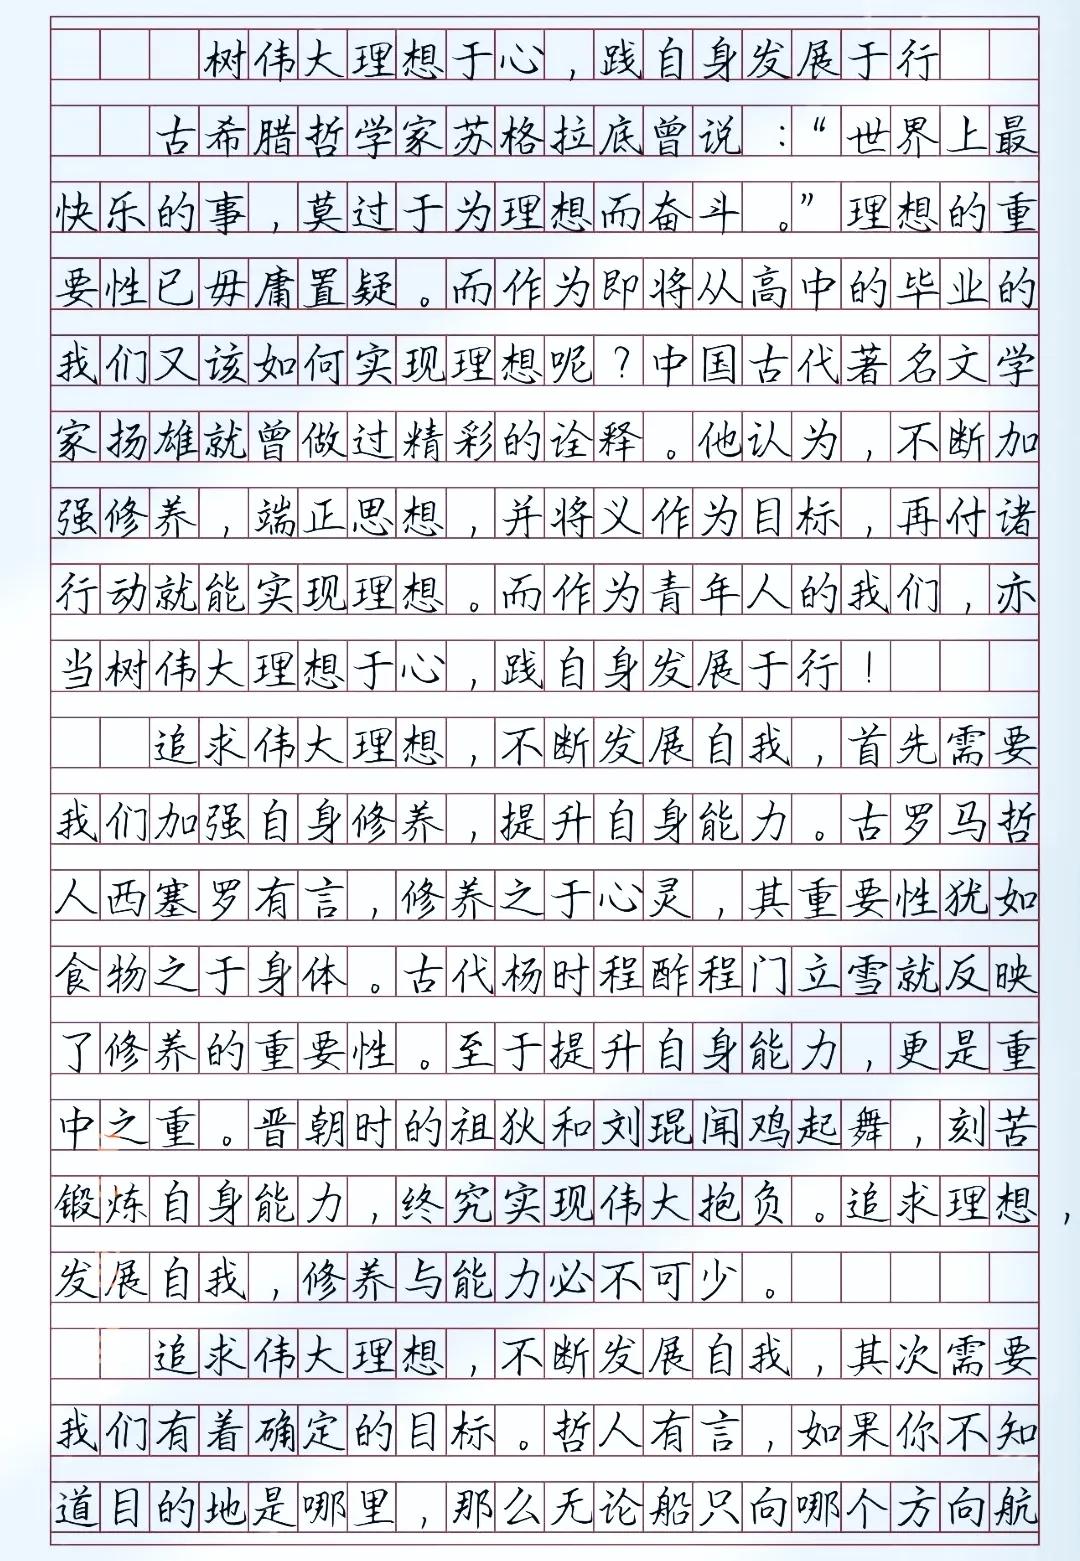 树伟大理想于心，践自身发展于行
古希腊哲学家苏格拉底曾说：“世界上最
快乐的事，莫过于为理想而奋斗。”理想的重
要性已毋庸置疑。而作为即将从高中的毕业的
我们又该如何实现理想呢？中国古代著名文学
家扬雄就曾做过精彩的诠释。他认为，不断加
强修养，端正思想，并将义作为目标，再付诸
行动就能实现理想。而作为青年人的我们，亦
当树伟大理想于心，践自身发展于行！
追求伟大理想，不断发展自我，首先需要
我们加强自身修养，提升自身能力。古罗马哲
人西塞罗有言，修养之于心灵，其重要性犹如
食物之于身体。古代杨时程酢程门立雪就反映
了修养的重要性。至于提升自身能力，更是重
中之重。晋朝时的祖狄和刘琨闻鸡起舞，刻苦
锻炼自身能力，终究实现伟大抱负。追求理想，
发展自我，修养与能力必不可少。
追求伟大理想，不断发展自我，其次需要
我们有着确定的目标。哲人有言，如果你不知
道目的地是哪里，那么无论船只向哪个方向航